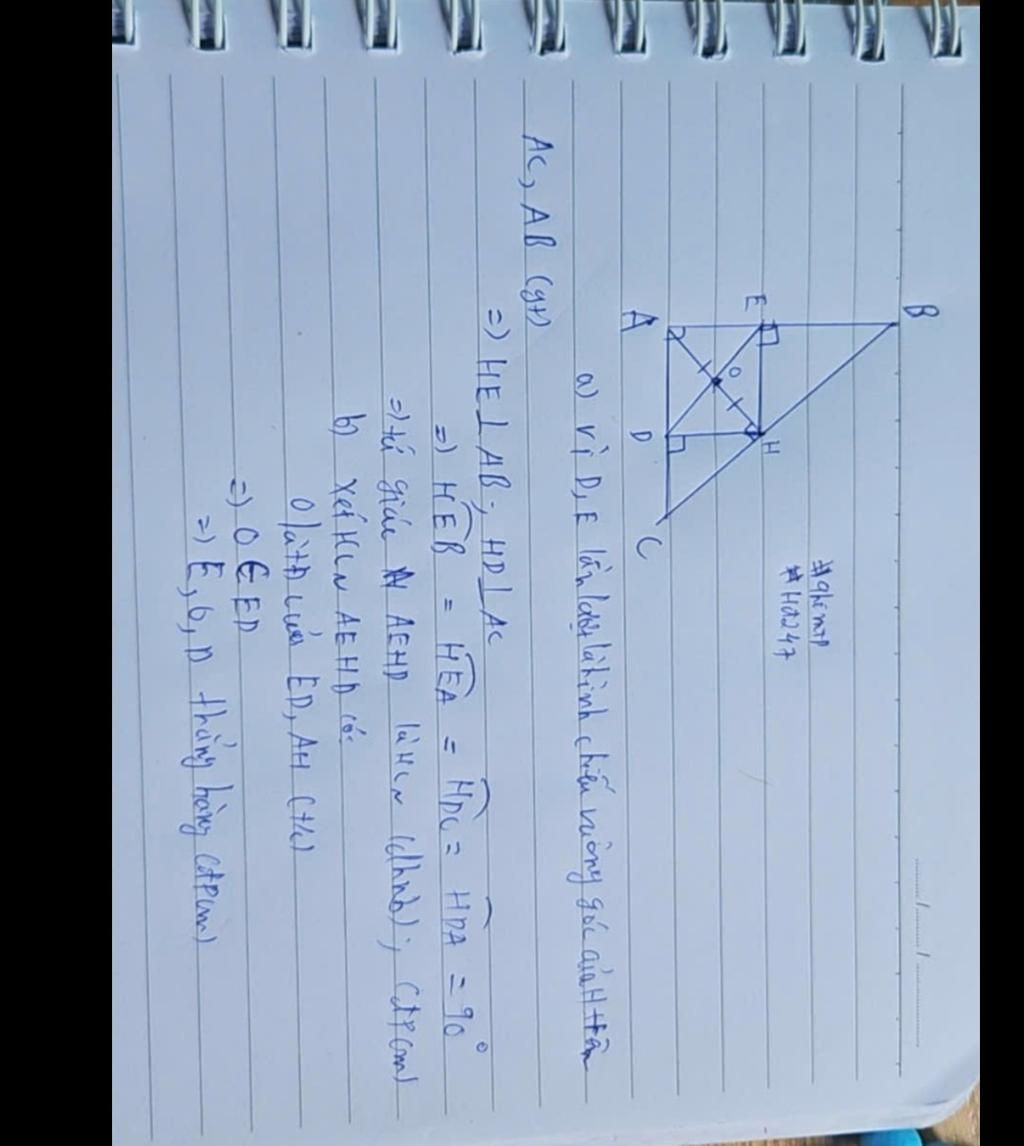 B
E
H
O
A
D
C
#ghimTP
#Hd247
a) Vì D, E lần lượt là hình chiếu vuông góc của H trên
AC, AB (gt)
=) HE ⊥ AB; HD ⊥ AC
=) HEB = HEA = HDC = HDA = 90°
=) tứ giác AEHD là HCN (dhnb); (đpcm)
b) Xét HCN AEHD có:
O là tđ của ED, AH (t/c)
=) O ∈ ED
=) E, O, D thẳng hàng (đpcm)